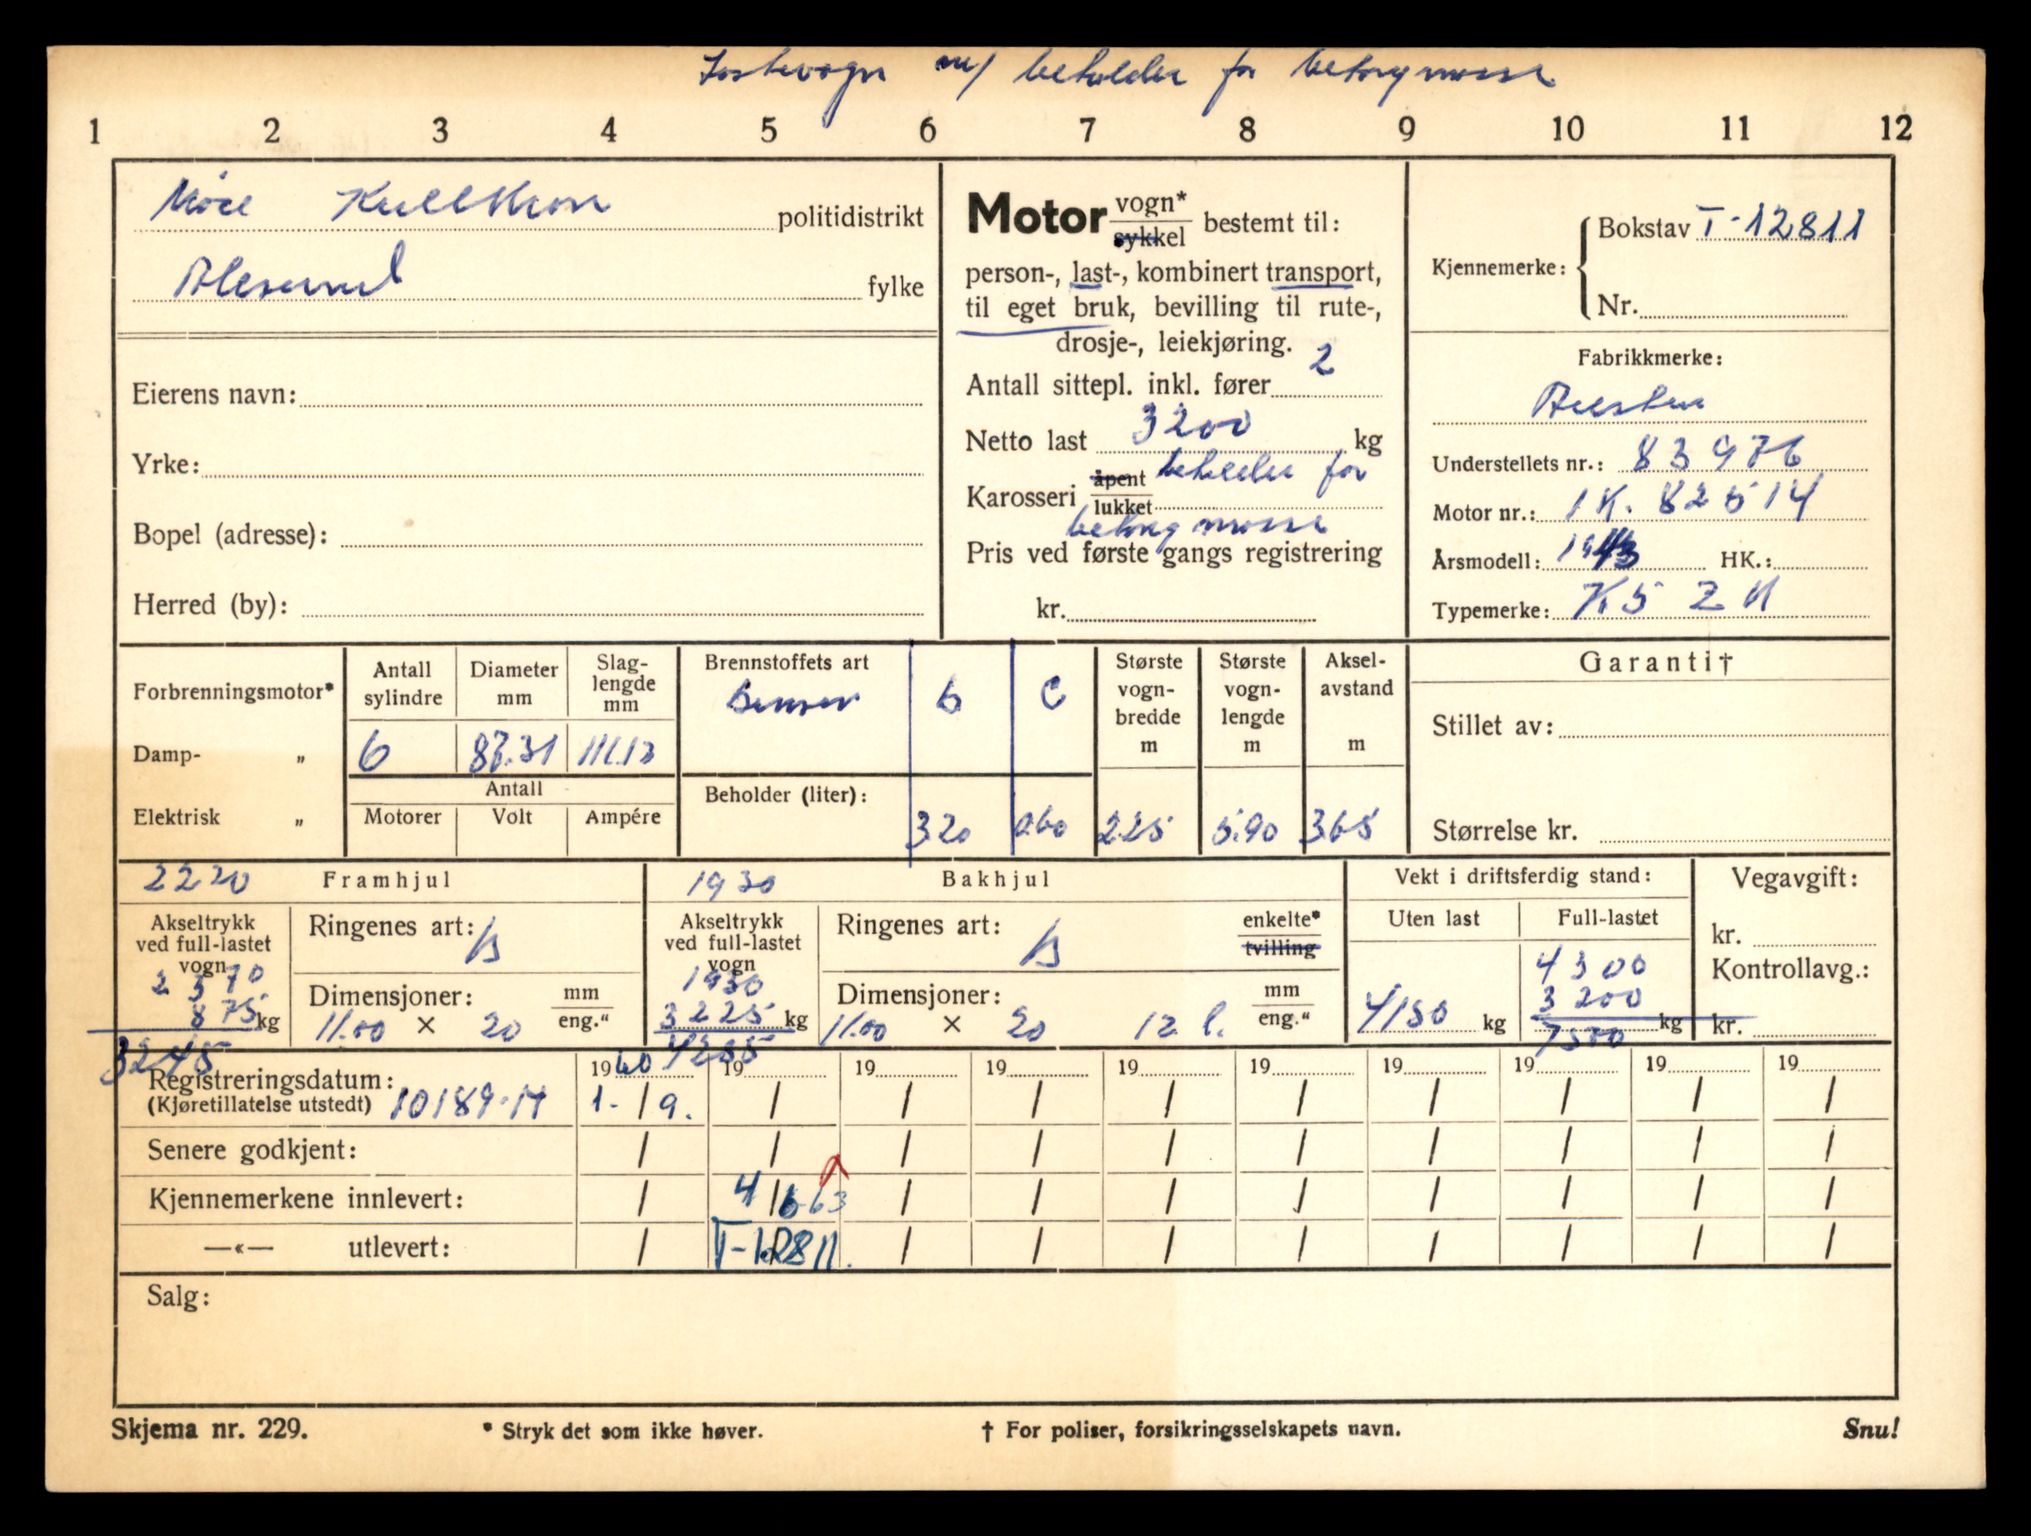 Lastevogn m/ beholder for betongmasse
1 2 3 4 5 6 7 8 9 10 11 12
Møre politidistrikt
Ålesund fylke
Eierens navn:
Yrke:
Bopel (adresse):
Herred (by):
Motor vogn* sykkel bestemt til:
person-, last-, kombinert transport,
til eget bruk, bevilling til rute-,
drosje-, leiekjøring.
Antall sittepl. inkl. fører 2
Netto last 3200 kg
Karosseri åpent lukket beholder for
betong masse
Pris ved første gangs registrering
kr.
Kjennemerke: Bokstav T-12811
Nr.
Fabrikkmerke:
Austin
Understellets nr.: 83976
Motor nr.: 1K. 82514
Årsmodell: 1943 HK.:
Typemerke: K5
Forbrenningsmotor*
Damp- „
Elektrisk „
Antall sylindre
6
Diameter mm
87.31
Slag-lengde mm
111.13
Antall
Motorer Volt Ampére
Brennstoffets art
Bensin
6 C
Beholder (liter):
320 060
Største vogn-bredde m
225
Største vogn-lengde m
5.90
Aksel-avstand m
365
Garanti†
Stillet av:
Størrelse kr.
2220 Framhjul
Akseltrykk
ved full-lastet
vogn
2370
875 kg
3245
Ringenes art: B
Dimensjoner: mm eng."
11.00 × 20
1930 Bakhjul
Akseltrykk
ved full-lastet
vogn
1930
3225 kg
4255
Ringenes art: B enkelte* tvilling
Dimensjoner: mm eng."
11.00 × 20 12 l.
Vekt i driftsferdig stand:
Uten last
4150 kg
Full-lastet
4300
3200
7500 kg
Vegavgift:
kr.
Kontrollavg.:
kr.
Registreringsdatum: 19 60 19 19 19 19 19 19 19 19 19
(Kjøretillatelse utstedt) 10189-14 1. / 9. / / / / / / / / /
Senere godkjent: / / / / / / / / / /
Kjennemerkene innlevert: / 4 / 6 63 / / / / / / / /
—«— utlevert: / T-12811. / / / / / / / /
Salg:
Skjema nr. 229. * Stryk det som ikke høver. † For poliser, forsikringsselskapets navn. Snu!